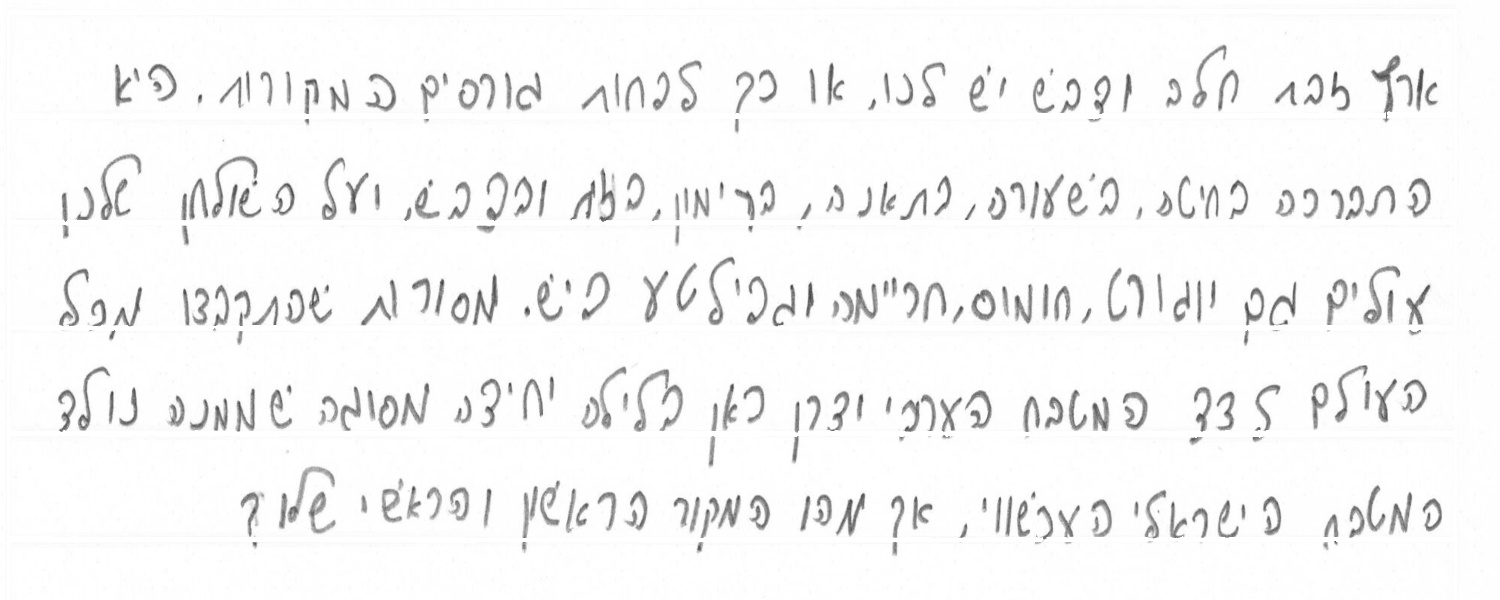 ארץ זבת חלב ודבש יש לנו, או כך לפחות גורסים המקורות. היא
התברכה בחיטה, בשעורה, בתאנה, ברימון, בזית ובדבש, ועל השולחן שלנו
עולים גם יוגורט, חומוס, חריימה וגפילטע פיש. מסורות שהתקבצו מכל
העולם לצד המטבח הערבי יצרו כאן בלילה יחידה מסוגה שממנה נולד
המטבח הישראלי העכשווי, אך מהו המקור הראשון והראשי שלו?